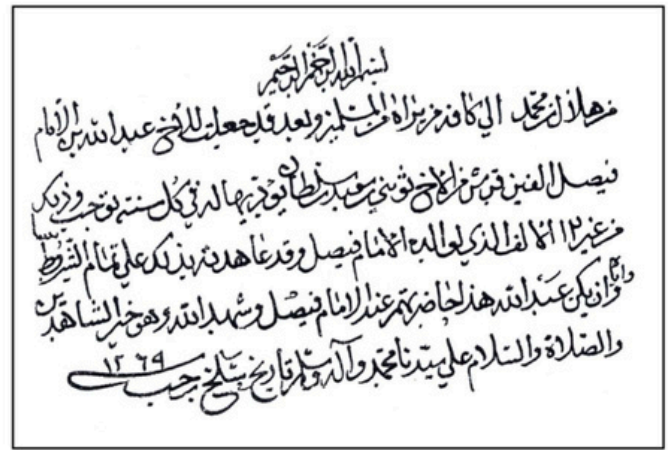 بسم الله الرحمن الرحيم
من هلال بن محمد الى كافة من يراه من المسلمين وبعد قد جعلت للأخ عبدالله بن الامام
فيصل الفين قرش من الاخ ثويني بن سعيد بن سلطان يوديها له في كل سنة بوجب وذلك
من غير ١٢ الالف الذي لوالده الامام فيصل وقد عاهدته بذلك على تمام الشروط
وان يكن عبدالله هذا حاضرهم عند الامام فيصل وشهد الله وهو خير الشاهدين
والصلاة والسلام على سيدنا محمد وآله وسلم تاريخ سلخ رجب ١٢٦٩